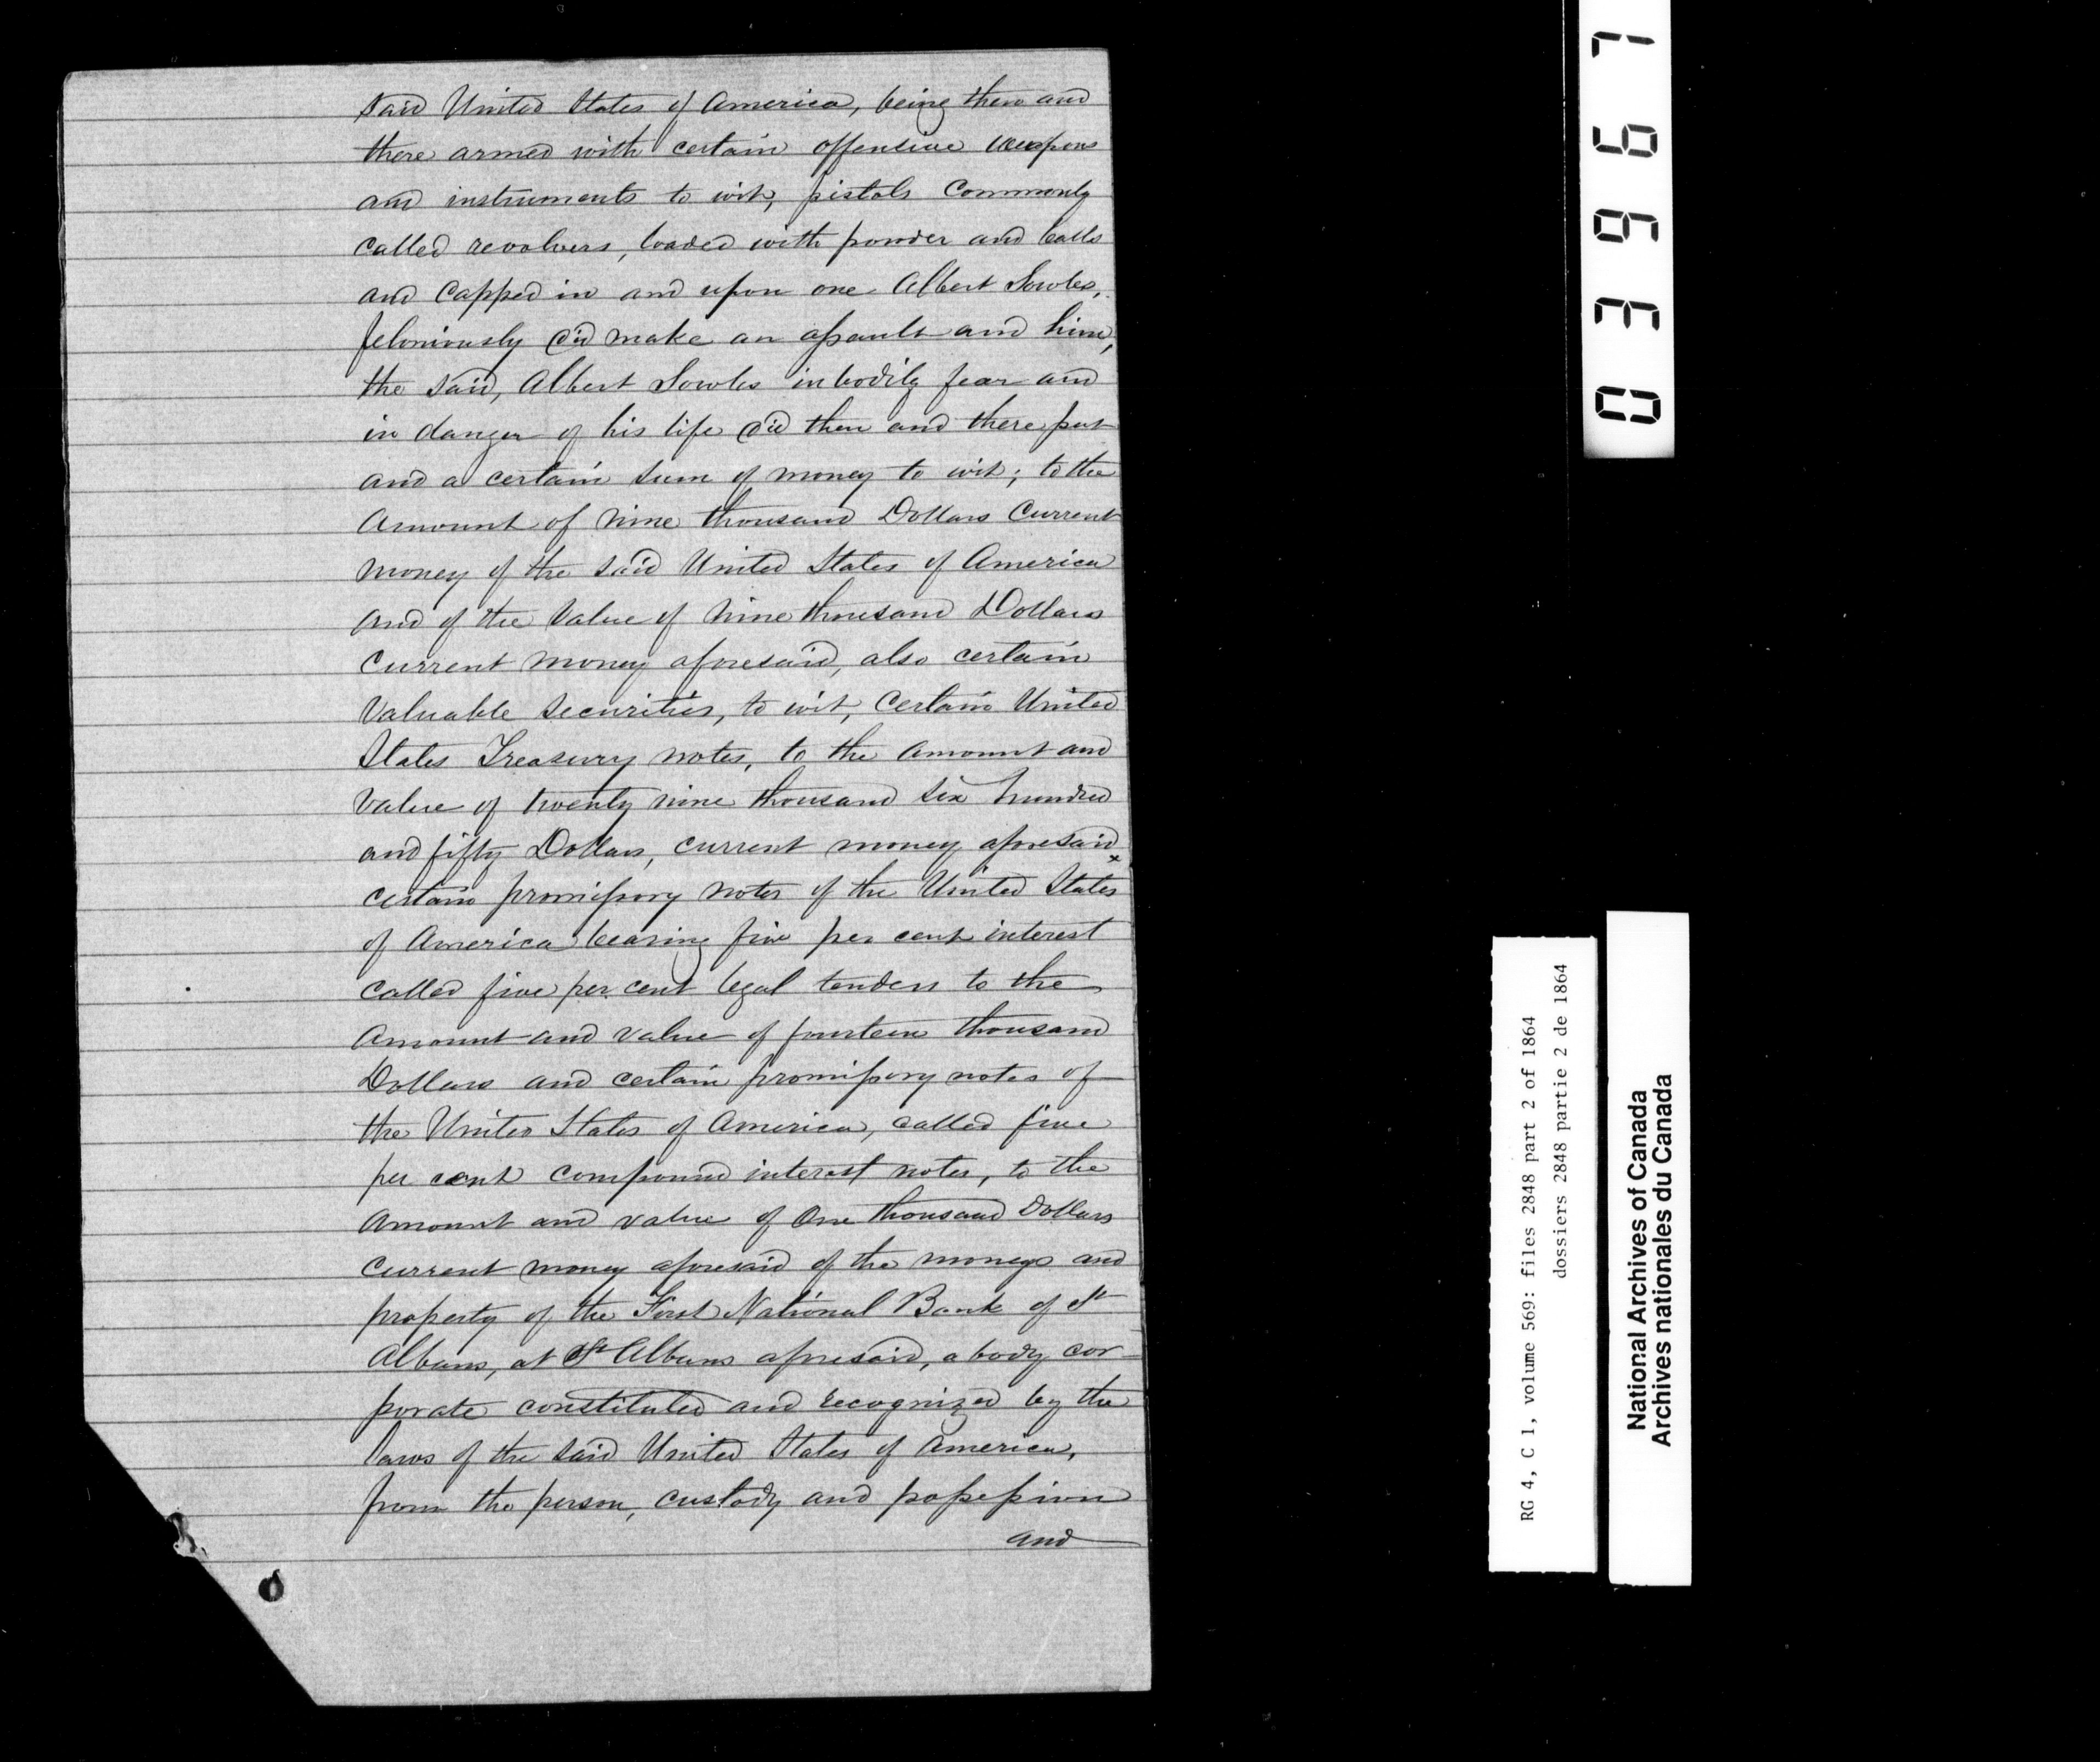 said United States of America, being then and
there armed with certain offensive weapons
and instruments to wit, pistols Commonly
called revolvers, loaded with powder and balls
and Capped in and upon one Albert Sowles,
feloniously did make an assault and him,
the said, Albert Sowles in bodily fear and
in danger of his life did then and there put
and a certain sum of money to wit; to the
Amount of nine thousand Dollars Current
money of the said United States of America
and of the Value of nine thousand Dollars
Current money aforesaid, also certain
Valuable Securities, to wit, Certain United
States Treasury notes, to the Amount and
Value of twenty nine thousand six hundred
and fifty Dollars, current money aforesaid x
certain promissory notes of the United States
of America bearing five per cent interest
Called five per cent legal tenders to the
Amount and value of fourteen thousand
Dollars and certain promissory notes of
the United States of America, called five
per cent compound interest notes, to the
Amount and value of One thousand Dollars
Current money aforesaid of the moneys and
property of the First National Bank of St
Albans, at St Albans aforesaid, a body cor-
porate constituted and recognized by the
laws of the said United States of America,
from the person, custody and possession
and
03967
RG 4, C 1, volume 569: files 2848 part 2 of 1864
dossiers 2848 partie 2 de 1864
National Archives of Canada
Archives nationales du Canada